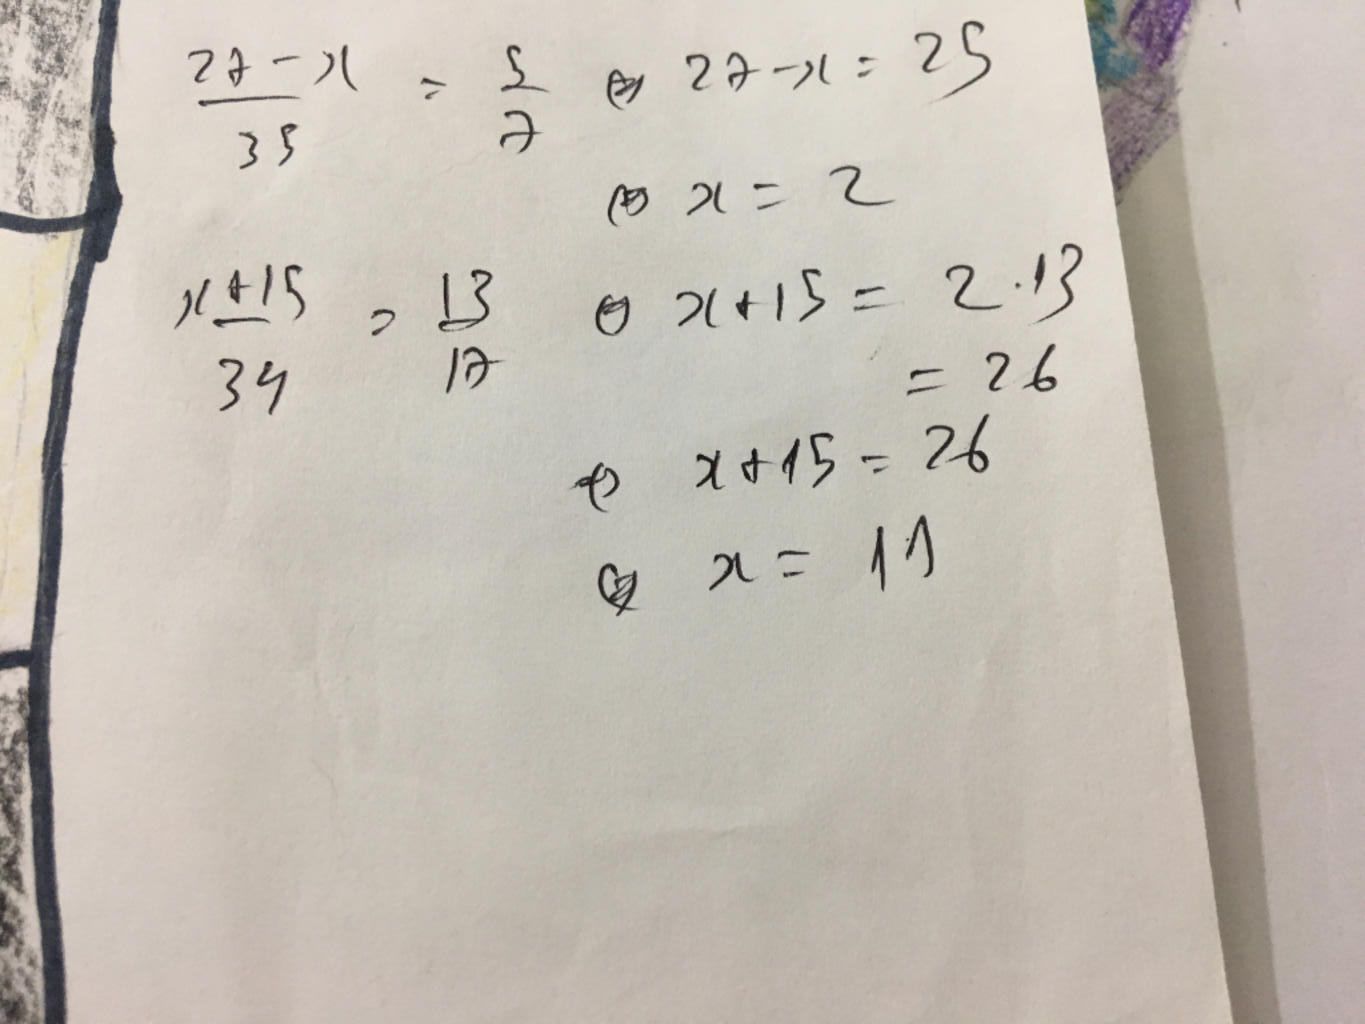 (27-x)/35 = 5/7 ⇔ 27-x = 25
⇔ x = 2
(x+15)/34 = 13/17 ⇔ x+15 = 2.13
= 26
⇔ x+15 = 26
⇔ x = 11